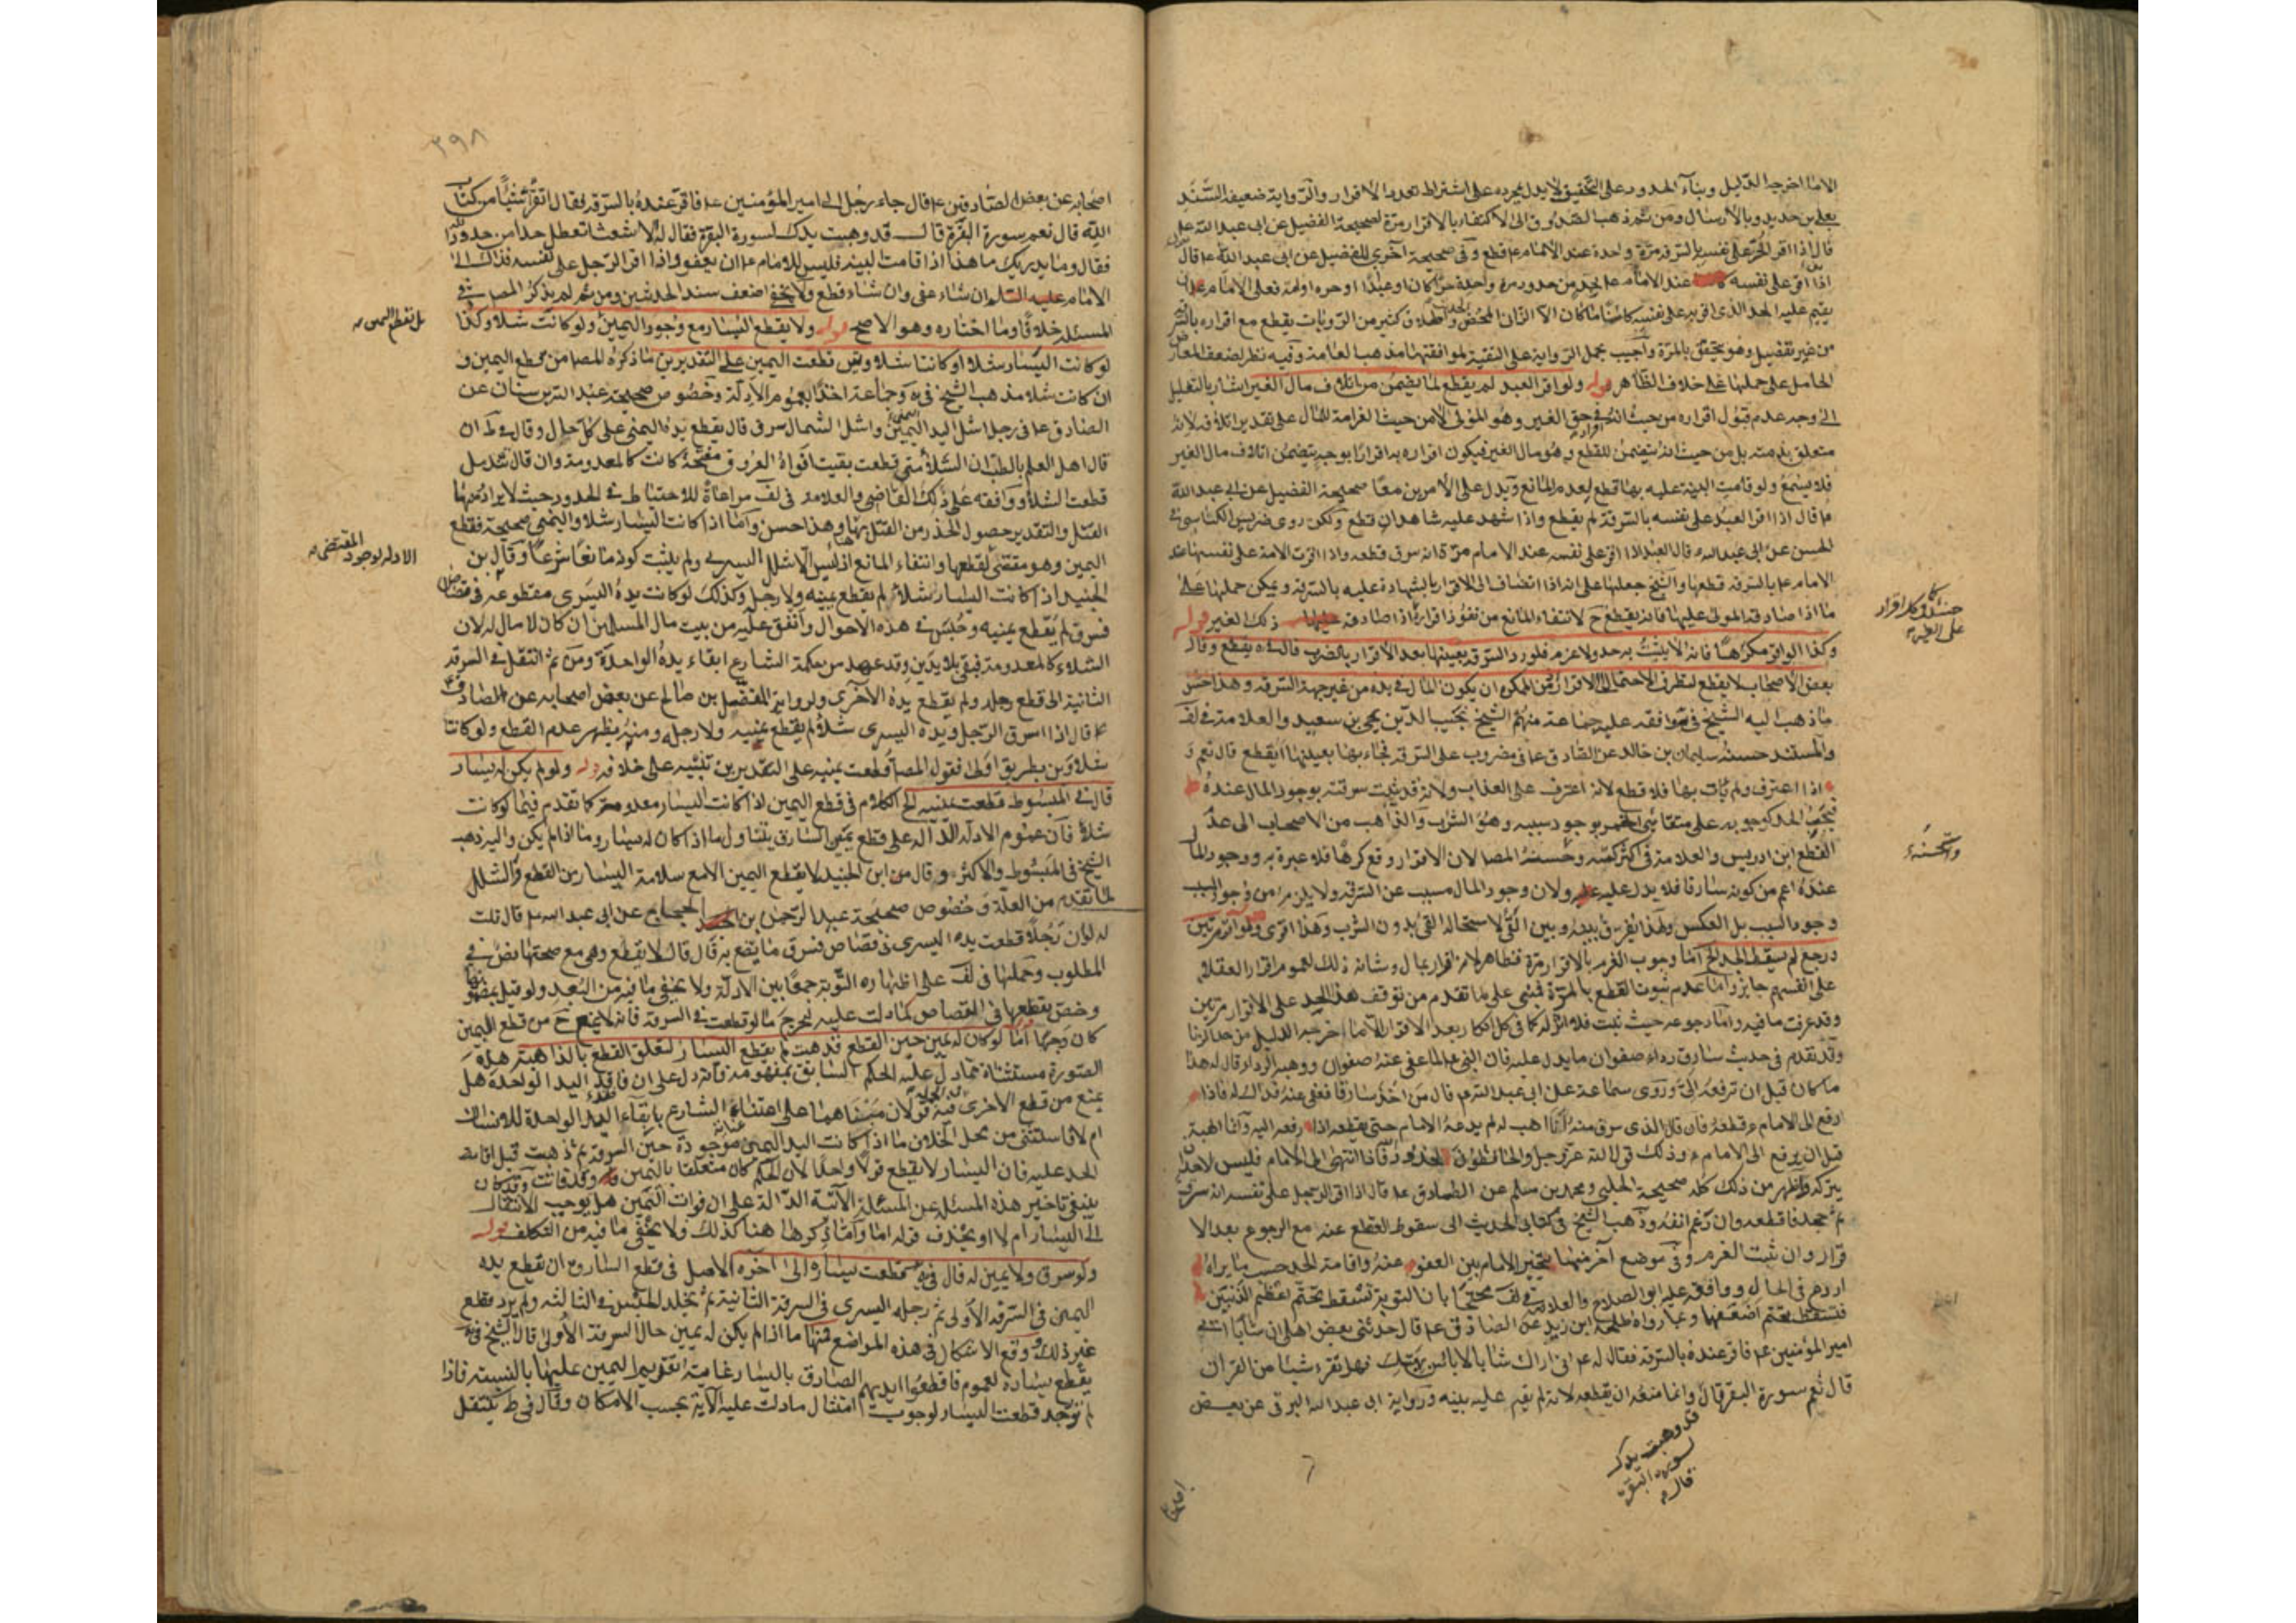 الا ما اخرجه الدليل وبناء الحدود على التخفيف لا يدل بمجرده على اشتراط تعدد الاقرار والرواية ضعيفة السند
بعلي بن حديد وبالارسال ومن ثم ذهب الصدوق الى الاكتفاء بالاقرار مرة لصحيحة الفضيل عن ابى عبد الله ع
قال اذا اقر الحر على نفسه بالسرقة مرة واحدة عند الامام ع قطع وفى صحيحة اخرى للفضيل عن ابى عبد الله ع قال
اذا اقر على نفسه عند الامام بحد من حدود مرة واحدة حرا كان او عبدا او حرة او امة فعلى الامام
يقيم عليه الحد الذى اقر به على نفسه كائنا ما كان الا الزانى المحصن وفى كثير من الروايات يقطع مع اقراره
من غير تفصيل وهو يتحقق بالمرة واجيب بحمل الرواية على التقية لموافقتها مذهب العامة وفيه نظر لضعف المعارض
الحامل على حملها على خلاف الظاهر قوله ولو اقر العبد لم يقطع لما يتضمن من اتلاف مال الغير اشار بالتعليل
الى وجه عدم قبول اقراره من حيث انه فى حق الغير وهو المولى لا من حيث الغرامة للمال على تقدير اتلافه لانه
متعلق بذمته بل من حيث انه يتضمن للقطع وهو مال الغير فيكون اقراره به اقرارا بوجه يتضمن اتلاف مال الغير
فلا يسمع ولو قامت البينة عليه بها قطع لعدم المانع ويدل على الامرين معا صحيحة الفضيل عن ابى عبد الله
ع قال اذا اقر العبد على نفسه بالسرقة لم يقطع واذا شهد عليه شاهدان قطع ولكن روى ضريس الكناسى فى
الحسن عن ابى عبد الله ع قال العبد اذا اقر على نفسه عند الامام مرة انه سرق قطعه واذا اقرت الامة على نفسها عند
الامام ع بالسرقة قطعها والشيخ حملها على انه اذا انضاف الى الاقرار الشهادة عليه بالسرقة ويمكن حملها على
ما اذا صادقه المولى عليها فانه يقطع ح لانتفاء المانع من نفوذ اقراره اذا صادقه ذلك الغير قوله
وكذا لو اقر مكرها فانه لا يثبت به حد ولا غرم فلو رد السرقة بعينها بعد الاقرار بالضرب قال فى يه يقطع وقال
بعض الاصحاب لا يقطع لتطرق الاحتمال الى الاقرار فمن الممكن ان يكون المال فى يده من غير جهة السرقة وهذا حسن
ما ذهب اليه الشيخ فى يه وافقه عليه جماعة منهم الشيخ نجيب الدين يحيى بن سعيد والعلامة فى لف
والمستند حسنة سليمان بن خالد عن الصادق ع فى مضروب على السرقة فجاء بها بعينها ايقطع قال نعم و
اذا اعترف ولم يأت بها فلا قطع لانه اعترف على العذاب ولانه قد ثبتت سرقته بوجود المال عنده
فيجب الحد كوجوبه على متقايئ الخمر بوجود سببه وهو الشرب والذاهب من الاصحاب الى عدم
القطع ابن ادريس والعلامة فى اكثر كتبه وحسنه المصا لان الاقرار وقع كرها فلا عبرة به ووجود المال
عنده اعم من كونه سارقا فلا يدل عليه ولان وجود المال مسبب عن السرقة ولا يلزم من وجود السبب
وجود المسبب بل العكس ولهذا يفرق بينه وبين القئ لاستحالة القئ بدون الشرب وهذا اقوى ولو اقر مرتين
ورجع لم يسقط الحد الخ اما وجوب الغرم بالاقرار مرة فظاهر لانه اقرار بمال وشانه ذلك لعموم اقرار العقلاء
على انفسهم جايز واما عدم ثبوت القطع بالمرة فمبنى على ما تقدم من توقف هذا الحد على الاقرار مرتين
وقد عرفت ما فيه واما رجوعه حيث ثبت فلا اثر له كما فى كل انكار بعد الاقرار الا ما اخرجه الدليل من حد الزنا
وقد تقدم فى حديث سارق رداء صفوان ما يدل عليه فان النبى ص لما عفى عنه صفوان ووهبه الرداء قال له هلا
ما كان قبل ان ترفعه الى وروى سماعة عن ابى عبد الله ع قال من اخذ سارقا فعفى عنه فذاك له فاذا
رفع الى الامام ع قطعه فان قال الذى سرق منه انا اهب له لم يدعه الامام حتى يقطعه اذا رفعه اليه وانما الهبة
قبل ان يرفع الى الامام ع وذلك قول الله عز وجل والحافظون لحدود فاذا انتهى الى الامام فليس لاحد ان
يتركه واظهر من ذلك كله صحيحة الحلبى ومحمد بن مسلم عن الصادق ع قال اذا اقر الرجل على نفسه انه سرق
ثم جحد فاقطعه وان رغم انفه وذهب الشيخ فى كتابى الحديث الى سقوط القطع عنه مع الرجوع بعد الا
قرار وان ثبت الغرم وفى موضع آخر منهما يتخير الامام بين العفو عنه واقامة الحد حسب ما يراه
اردع فى الحال ووافقه عليه ابو الصلاح والعلامة فى لف محتجا بان التوبة تسقط تحتم اعظم الذنبين
فتسقط تحتم اضعفهما وبما رواه طلحة ابن زيد عن الصادق ع قال حدثنى بعض اهلى ان شابا اتى
امير المؤمنين ع فاقر عنده بالسرقة فقال له ع انى اراك شابا لا باس بهيئتك فهل تقرء شيئا من القران
قال نعم سورة البقرة قال وانما منعه ان يقطعه لانه لم يقم عليه بينه ورواية ابى عبد الله البرقى عن بعض
قد وهبت يدك
لسورة البقرة
قال
على الغير
واستحسنه
٣٩٨
اصحابه عن بعض الصادقين ع قال جاء رجل الى امير المؤمنين ع فاقر عنده بالسرقة فقال اتقرأ شيئا من كتاب
الله قال نعم سورة البقرة قال قد وهبت يدك لسورة البقرة فقال له الاشعث اتعطل حدا من حدود الله
فقال وما يدريك ما هذا اذا قامت البينة فليس للامام ع ان يعفو واذا اقر الرجل على نفسه فذاك الى
الامام عليه السلام ان شاء عفى وان شاء قطع ولا يخفى اضعف سند الحديثين ومن ثم لم يذكر المصا فى
المسئلة خلافا وما اختاره وهو الاصح قوله ولا يقطع اليسار مع وجود اليمين ولو كانت شلاء وكذا
لو كانت اليسار شلاء او كانتا شلاوين قطعت اليمين على التقديرين ما ذكره المصا من قطع اليمين و
ان كانت شلاء مذهب الشيخ فى يه وجماعة اخذا بعموم الادلة وخصوص صحيحة عبد الله بن سنان عن
الصادق ع فى رجل اشل اليد اليمين واشل الشمال سرق قال يقطع يده اليمنى على كل حال وقال فى ط ان
قال اهل العلم بالطب ان الشلاء متى قطعت بقيت افواه العروق مفتحة كانت كالمعدومة وان قال تندمل
قطعت الشلاء ووافقه على ذلك القاضى والعلامة فى لف مراعاة للاحتياط فى الحدود حيث لا يراد منها
القتل والتقدير حصول الحذر من القتل بها وهذا حسن واما اذا كانت اليسار شلاء واليمنى صحيحة فقطع
اليمين وهو مقتضى لقطعها وانتفاء المانع اذ ليس الا شلل اليسرى ولم يثبت كونه مانعا شرعا وقال بن
الجنيد اذا كانت اليسار شلاء لم يقطع يمينه ولا رجله وكذلك لو كانت يده اليسرى مقطوعة فى قصاص
فسرق لم يقطع يمينه وحبس فى هذه الاحوال وانفق عليه من بيت مال المسلمين ان كان لا مال له لان
الشلاء كالمعدومة فبقى بلا يدين وقد عهد من حكمة الشارع ابقاء يده الواحدة ومن ثم انتقل فى السرقة
الثانية الى قطع رجله ولم يقطع يده الاخرى ولرواية المفضل بن صالح عن بعض اصحابه عن الصادق
ع قال اذا سرق الرجل ويده اليسرى شلاء لم يقطع يمينه ولا رجله ومنه يظهر عدم القطع ولو كانتا
شلاوين بطريق اولى فقول المصا قطعت يمينه على التقديرين تنبيه على خلافه قوله ولو لم يكن له يسار
قال فى المبسوط قطعت يمينه الخ الكلام فى قطع اليمين اذا كانت اليسار معدومة كما تقدم فيما لو كانت
شلاء فان عموم الادلة الدالة على قطع يمين السارق يتناول ما اذا كان له يسار وما اذا لم يكن واليه ذهب
الشيخ فى المبسوط والاكثر وقال ابن الجنيد لا يقطع اليمين الا مع سلامة اليسار من القطع والشلل
لما تقدم من العلة وخصوص صحيحة عبد الرحمن بن الحجاج عن ابى عبد الله ع قال قلت
له لو ان رجلا قطعت يده اليسرى فى قصاص فسرق ما يصنع به قال قال لا يقطع وهى مع صحتها نص فى
المطلوب وحملها فى لف على اظهاره التوبة جمعا بين الادلة ولا يخفى ما فيه من البعد ولو قيل بمفهومها
وخص بقطعها فى القصاص كما دلت عليه ليخرج ما لو قطعت فى السرقة فانه لا يمنع ح من قطع اليمين
كان وجها اما لو كان له يمين حين القطع فذهبت لم يقطع اليسار لتعلق القطع بالذاهبة هذه
الصورة مستثناة مما دل عليه الحكم السابق بمفهومه فانه دل على ان فاقد اليد الواحدة هل
يمنع من قطع الاخرى فيه قولان مبناهما على اعتناء الشارع بابقاء اليد الواحدة للانسان
ام لا فاستثنى من محل الخلاف ما اذا كانت اليد اليمنى موجودة حين السرقة ثم ذهبت قبل اقامة
الحد عليه فان اليسار لا يقطع قولا واحدا لان الحكم كان متعلقا باليمين وقد فاتت وقد كان
ينبغى تاخير هذه المسئلة عن المسئلة الآتية الدالة على ان فوات اليمين هل يوجب الانتقال
الى اليسار ام لا او يحذف قوله اما واما ذكرها هنا كذلك ولا يخفى ما فيه من التكلف قوله
ولو سرق ولا يمين له قال فى يه قطعت يساره الى آخره الاصل فى قطع السارق ان يقطع يده
اليمنى فى السرقة الاولى ثم رجله اليسرى فى السرقة الثانية ثم يخلد الحبس فى الثالثة ولم يرد قطع
غير ذلك ووقع الاشكال فى هذه المواضع فمنها ما اذا لم يكن له يمين حال السرقة الاولى قال الشيخ فى يه
يقطع يساره لعموم فاقطعوا ايديهم الصادق باليسار غايته تقديم اليمين عليها بالنسبة فاذا
لم توجد قطعت اليسار لوجوب امتثال ما دلت عليه الآية بحسب الامكان وقال فى ط ينتقل
بل تقطع اليمين
الادلة لوجود المقتضى